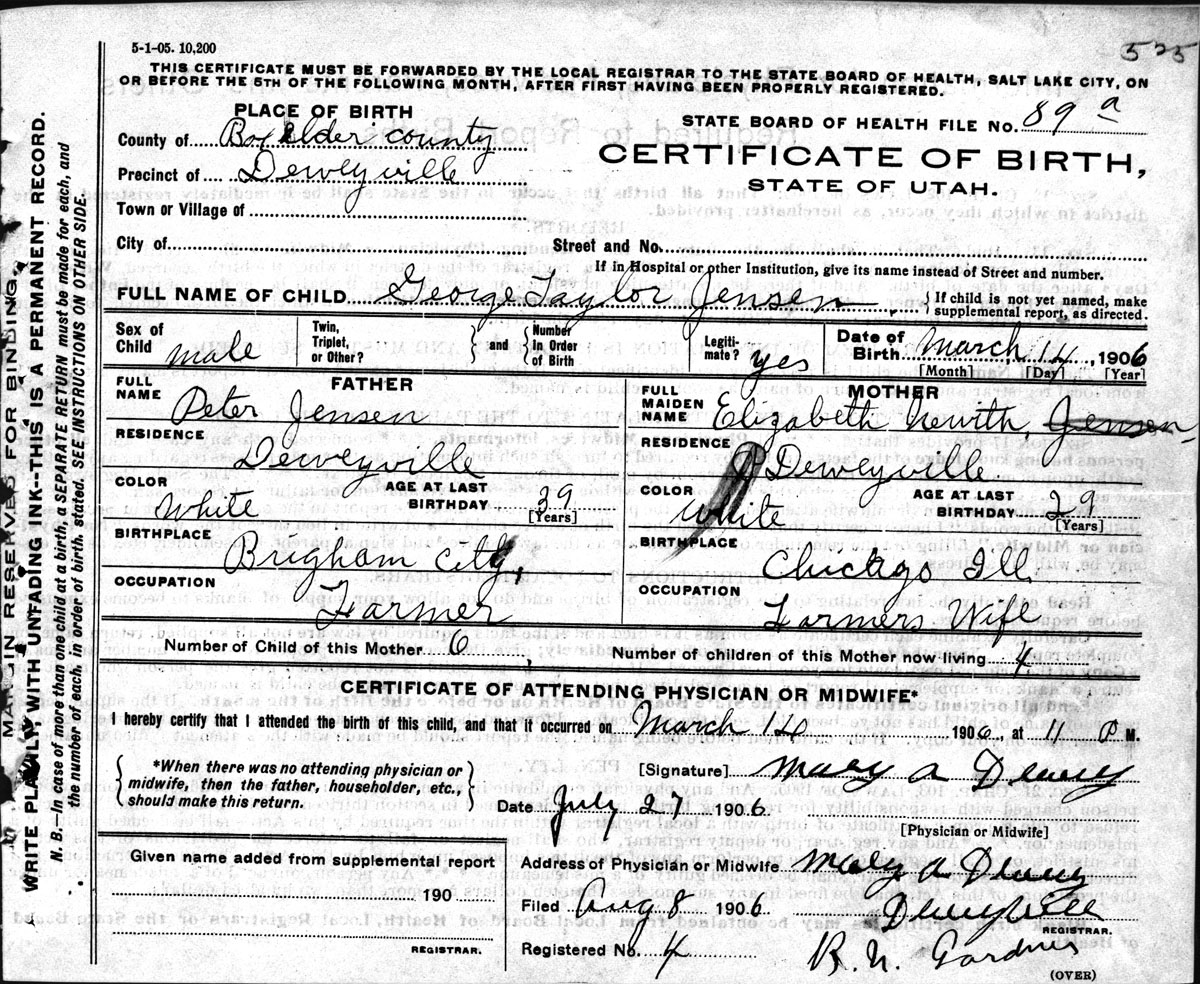 5-1-05. 10,200
525
THIS CERTIFICATE MUST BE FORWARDED BY THE LOCAL REGISTRAR TO THE STATE BOARD OF HEALTH, SALT LAKE CITY, ON
OR BEFORE THE 5TH OF THE FOLLOWING MONTH, AFTER FIRST HAVING BEEN PROPERLY REGISTERED.
PLACE OF BIRTH
STATE BOARD OF HEALTH FILE No. 89 a
County of Box Elder county
CERTIFICATE OF BIRTH,
Precinct of Deweyville
STATE OF UTAH.
Town or Village of
City of Street and No.
If in Hospital or other Institution, give its name instead of Street and number.
FULL NAME OF CHILD George Taylor Jensen { If child is not yet named, make supplemental report, as directed.
Sex of Child male
Twin, Triplet, or Other? } and { Number In Order of Birth
Legitimate? yes
Date of Birth March 14, 1906
[Month] [Day] [Year]
FATHER
FULL NAME Peter Jensen
RESIDENCE Deweyville
COLOR White AGE AT LAST BIRTHDAY 39 [Years]
BIRTHPLACE Brigham City,
OCCUPATION Farmer
MOTHER
FULL MAIDEN NAME Elizabeth Newth Jensen
RESIDENCE Deweyville
COLOR White AGE AT LAST BIRTHDAY 29 [Years]
BIRTHPLACE Chicago Ill.
OCCUPATION Farmers Wife
Number of Child of this Mother 6 Number of children of this Mother now living 4
CERTIFICATE OF ATTENDING PHYSICIAN OR MIDWIFE*
I hereby certify that I attended the birth of this child, and that it occurred on March 14 1906, at 11 P M.
{ *When there was no attending physician or
midwife, then the father, householder, etc.,
should make this return. }
[Signature] Mary A Dewey
Date July 27 1906
[Physician or Midwife]
Given name added from supplemental report
190
REGISTRAR.
Address of Physician or Midwife Mary A Dewey
Filed Aug 8 1906 Deweyville
REGISTRAR.
Registered No. 4 R. N. Gardner
(OVER)
MARGIN RESERVED FOR BINDING.
WRITE PLAINLY, WITH UNFADING INK--THIS IS A PERMANENT RECORD.
N. B. In case of more than one child at a birth, a SEPARATE RETURN must be made for each, and
the number of each, in order of birth, stated. SEE INSTRUCTIONS ON OTHER SIDE.